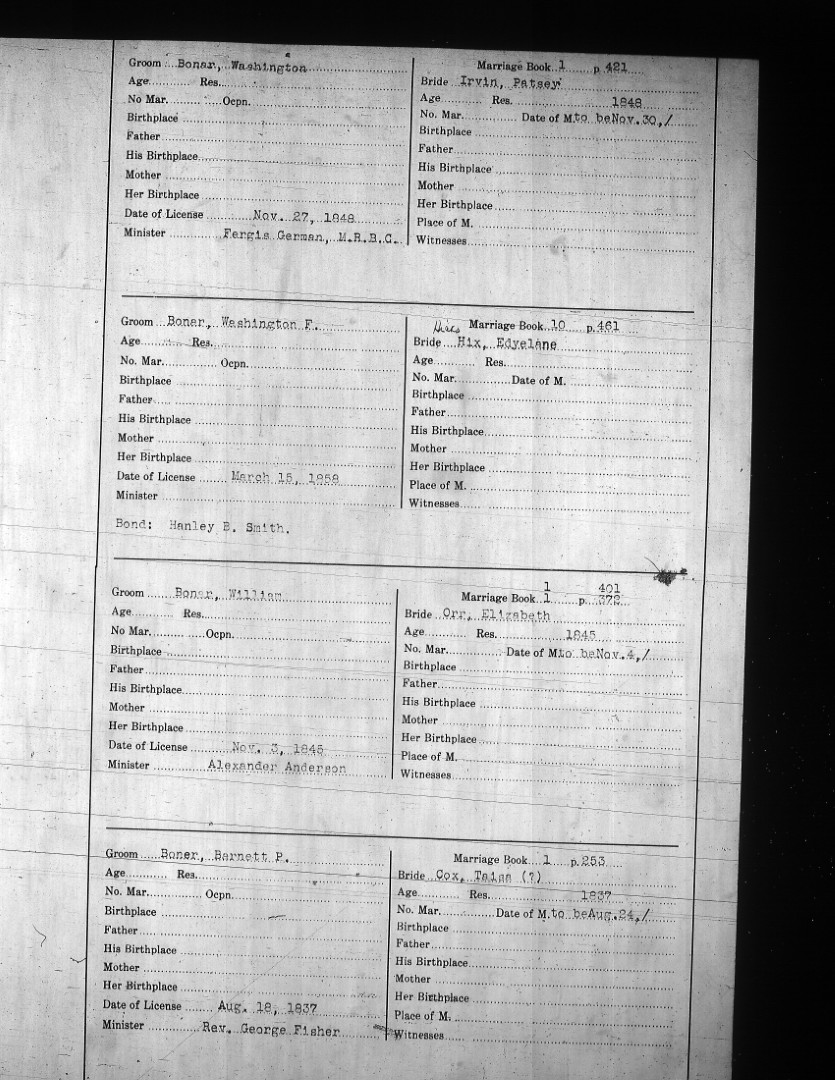 Groom Bonar, Washington
Age Res.
No Mar. Ocpn.
Birthplace
Father
His Birthplace
Mother
Her Birthplace
Date of License Nov. 27, 1848
Minister Fergis German, M.R.B.C.
Marriage Book 1 p. 421
Bride Irvin, Patsey
Age Res. 1848
No. Mar. Date of M. to be Nov. 30, /
Birthplace
Father
His Birthplace
Mother
Her Birthplace
Place of M.
Witnesses
Groom Bonar, Washington F.
Age Res.
No. Mar. Ocpn.
Birthplace
Father
His Birthplace
Mother
Her Birthplace
Date of License March 15, 1858
Minister
Bond: Hanley B. Smith.
Marriage Book 10 p. 461
Bride Hix, Edyelane
Age Res.
No. Mar. Date of M.
Birthplace
Father
His Birthplace
Mother
Her Birthplace
Place of M.
Witnesses
Groom Boner, William
Age Res.
No Mar. Ocpn.
Birthplace
Father
His Birthplace
Mother
Her Birthplace
Date of License Nov. 3, 1845
Minister Alexander Anderson
1 401
Marriage Book 1 p. 372
Bride Orr, Elizabeth
Age Res. 1845
No. Mar. Date of M. to be Nov. 4, /
Birthplace
Father
His Birthplace
Mother
Her Birthplace
Place of M.
Witnesses
Groom Boner, Barnett P.
Age Res.
No. Mar. Ocpn.
Birthplace
Father
His Birthplace
Mother
Her Birthplace
Date of License Aug. 18, 1837
Minister Rev. George Fisher
Marriage Book 1 p. 253
Bride Cox, (?)
Age Res. 1837
No. Mar. Date of M. to be Aug. 24, /
Birthplace
Father
His Birthplace
Mother
Her Birthplace
Place of M.
Witnesses